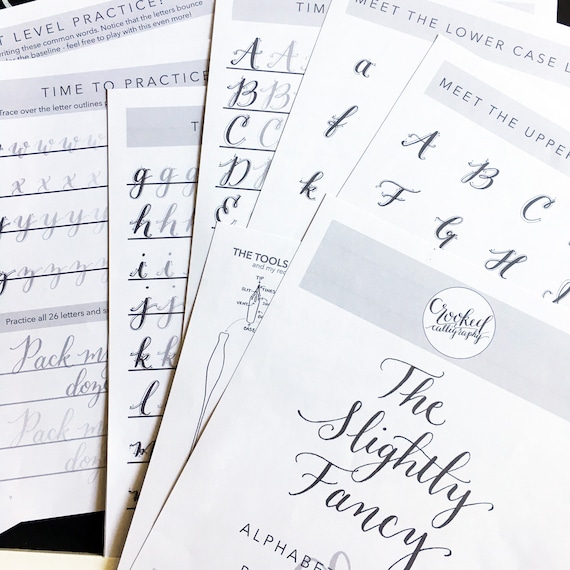 T LEVEL PRACTICE?
writing these common words. Notice that the letters bounce
the baseline - feel free to play with this even more!
TIME TO PRACTICE
Trace over the letter outlines
w w w w
x x x x
y y y y y
z z z z
Practice all 26 letters and
Pack m
doze
Pack m
doze
T
g g g
h h h
i i i
j j j
k k k
l l
m
n
TIM
A A A
B B B
C C
D D
E
MEET THE LOWER CASE L
a
f
k
MEET THE UPPER
A B C
F G H
THE TOOLS
and my
SLIT
TINES
VENT
BASE
Crooked
calligraphy
The
Slightly
Fancy
ALPHABET